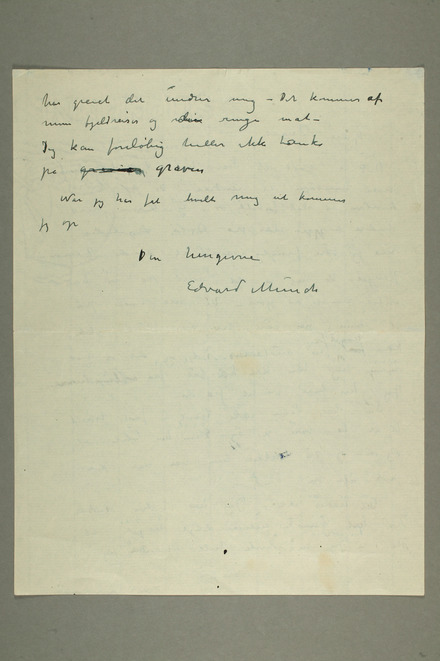 har grånet det undrer mig – Det kommer af
mine fjeldreiser og ringe mat –
Jeg kan foreløbig heller ikke tænke
på graven
Når jeg har fåt hvilt mig ut kommer
jeg op
Din hengivne
Edvard Munch